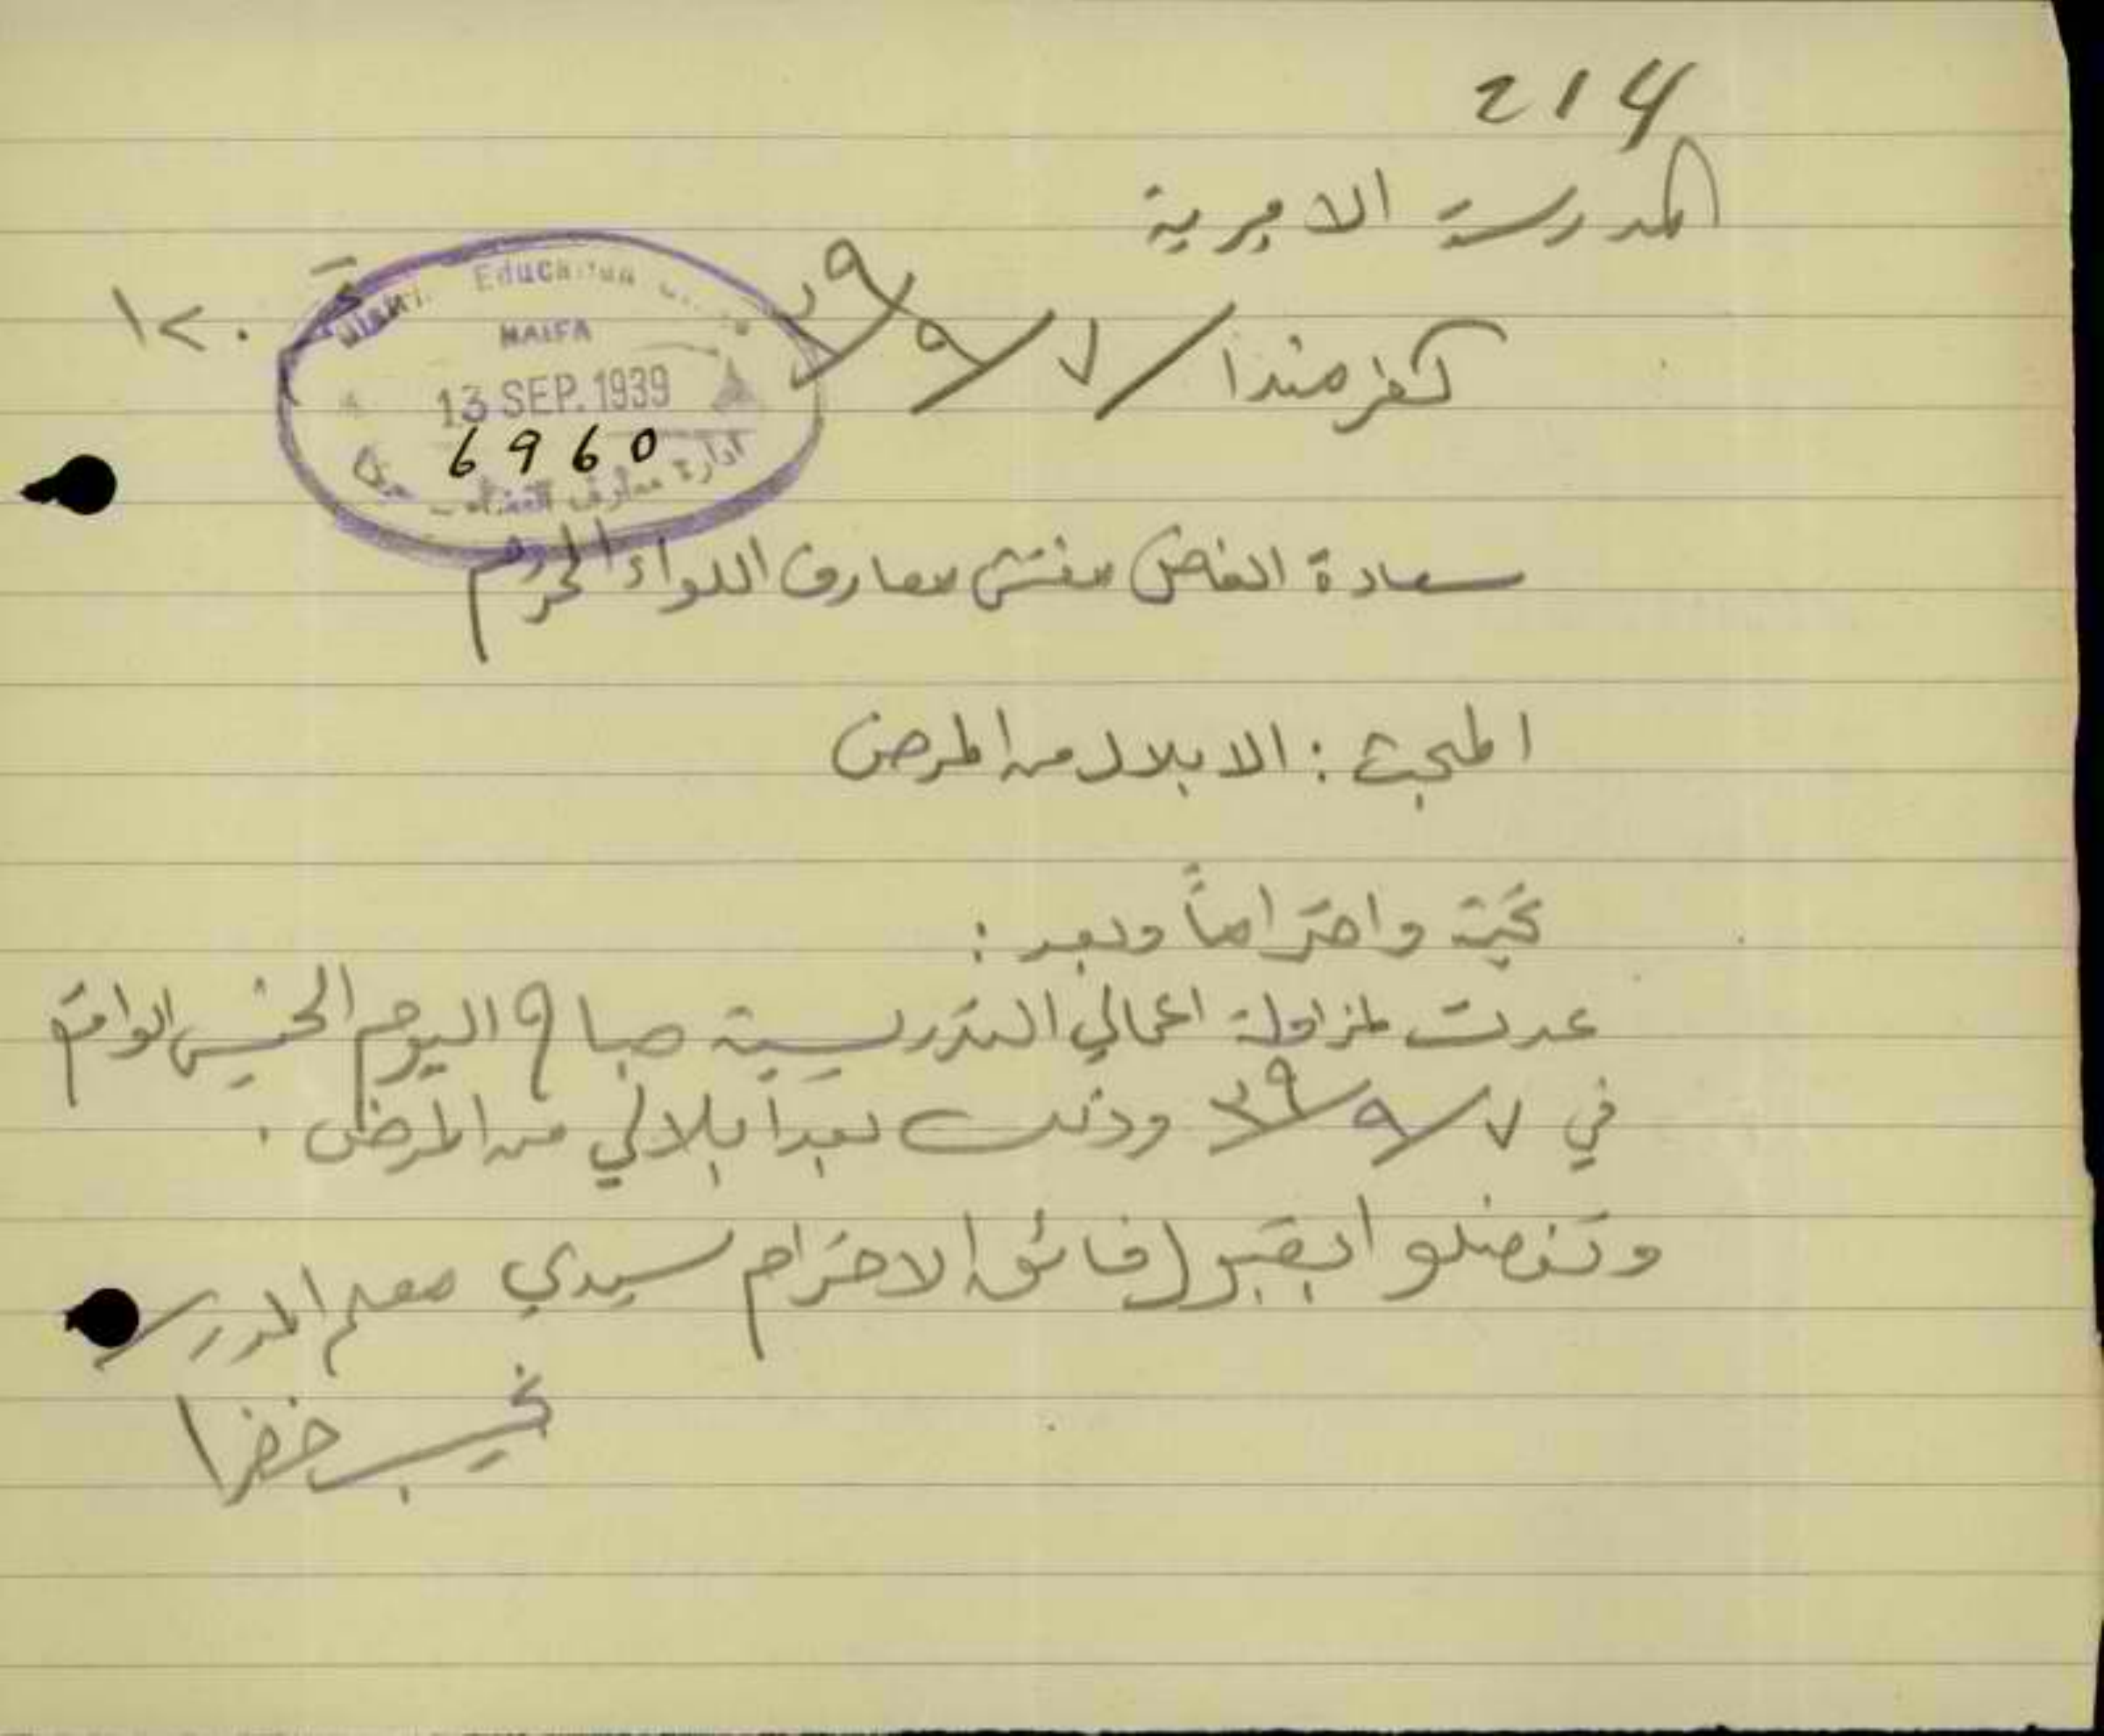 214
المدرسة الاميرية
كفر مندا / ٧ / ٩ / ٣٩
١٢٠
Education
HAIFA
13 SEP. 1939
6960
ادارة معارف القضاء
سعادة الفاضل مفتش معارف اللواء المحترم
المبحث : الابلال من المرض
تحية واحتراماً وبعد :
عدت لمزاولة اعمالي التدريسية صباح اليوم الخميس الواقع
في ٧ / ٩ / ٣٩ وذلك بعد ابلالي من المرض .
وتفضلوا بقبول فائق الاحترام سيدي معلم المدرسة
نجيب خضرا